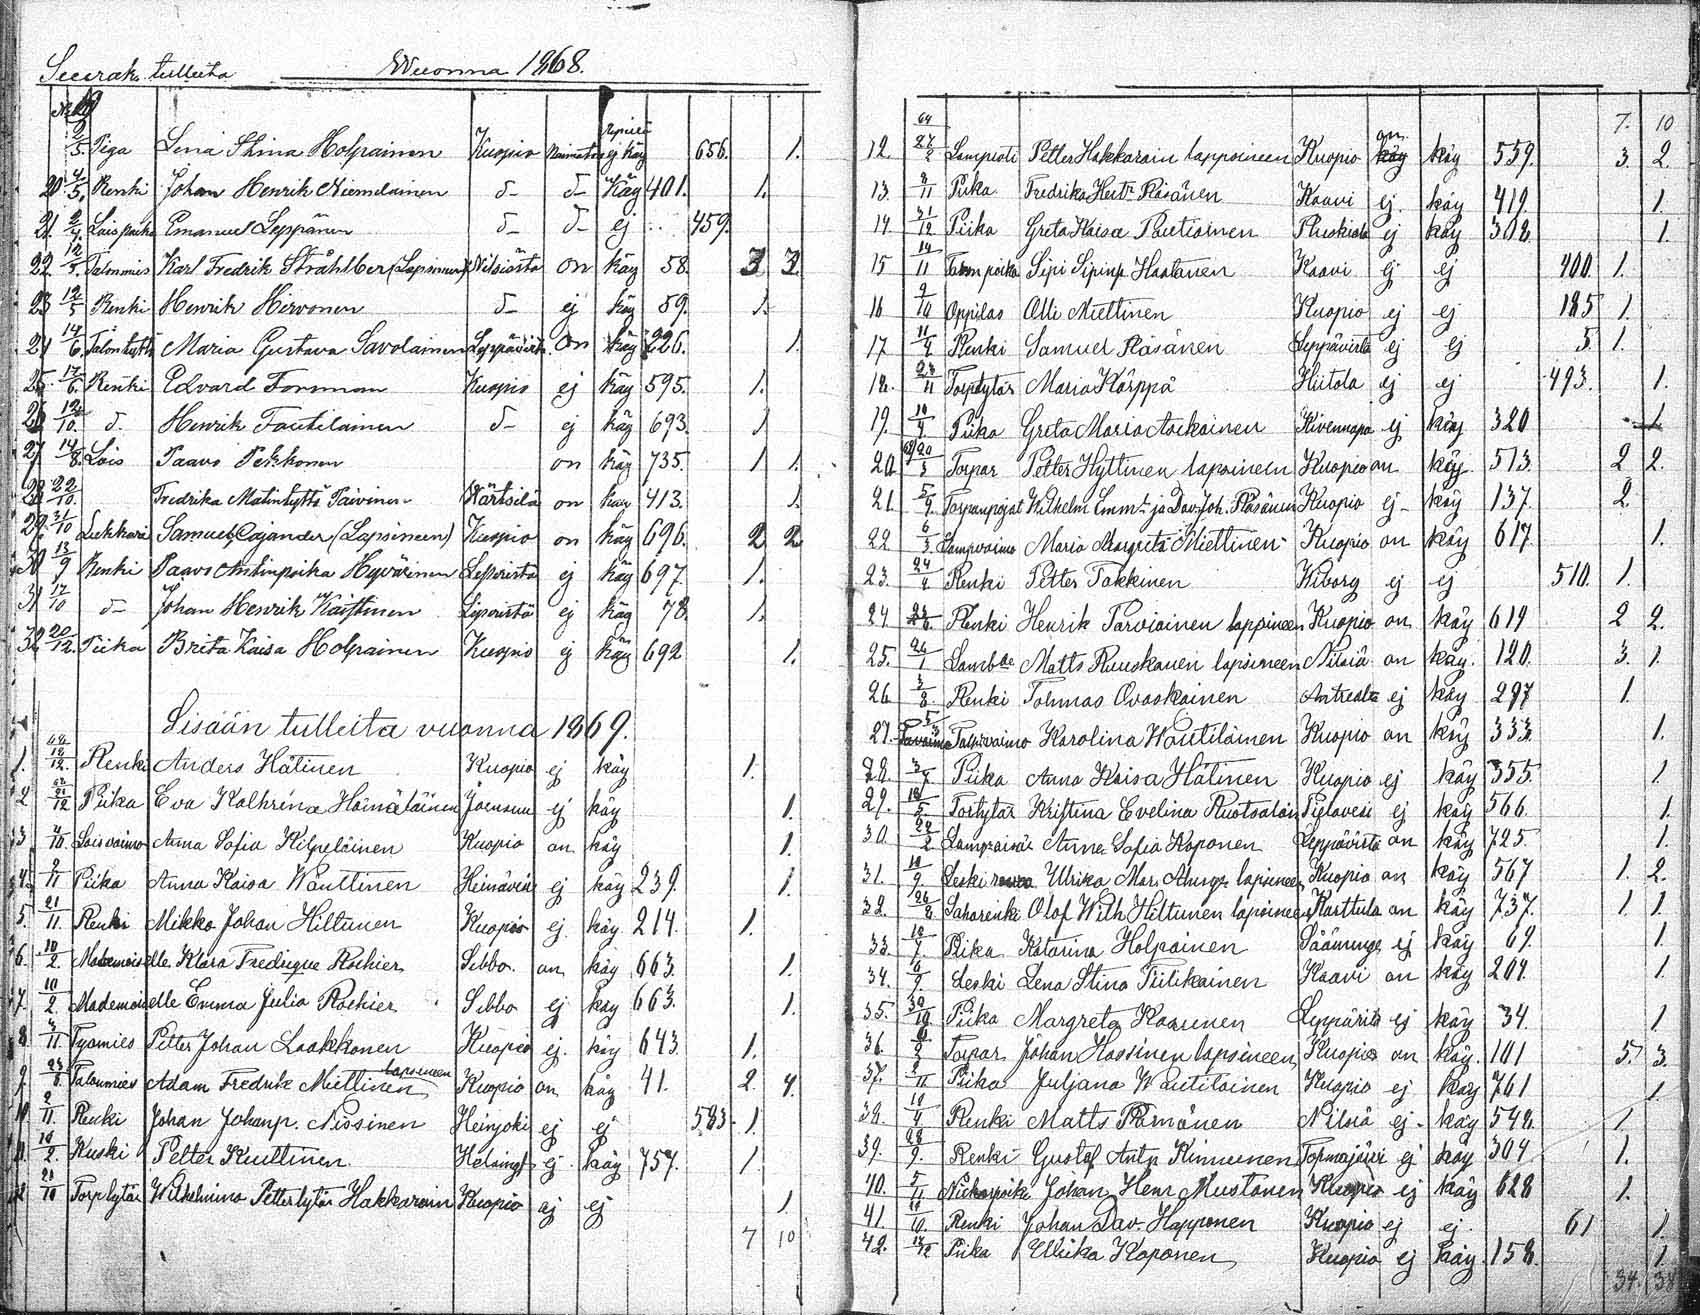 Seurak. tulleita Wuonna 1868.
2/5. Piga Lena Stina Holpainen Kuopio ej käy 656. 1.
20 4/5. Renki Johan Henrik Niemelainen d- d- käy 401. 1.
21. 2/4. Loispoika Emanuel Leppänen d- d- ej 459.
22 12/5. Talonmies Karl Fredrik Stråhlber (Lapsineen) Nilsiästa on käy 58. 3 3.
23 12/5 Renki Henrik Hirvonen d- ej käy 59. 1.
24 14/6. Talontyttö Maria Gustava Savolainen Leppävirt. on käy 226. 1.
25. 17/6. Renki Edvard Forsman Kuopio ej käy 595. 1.
26 12/10. d. Henrik Tautilainen d- ej käy 693. 1
27 14/8. Lois Paavo Pekkonen on käy 735. 1 1.
28 22/10. Fredrika Matintyttö Päivinen Wärtsilä on käy 413. 1.
29. 31/10 Lukkari Samuel Cajander (Lapsineen) Kuopio on käy 696. 2 2
30 13/9 Renki Paavo Antinpoika Hyvärinen Lepävirta ej käy 697. 1.
31 17/10 d- Johan Henrik Kaistinen Lepävirtä ej käy 78. 1.
32 20/12. Piika Brita Kaisa Holpainen Kuopio ej käy 692 1.
Sisään tulleita vuonna 1869.
1. 68 18/12. Renki Anders Hätinen Kuopio ej käy 1.
2 68 21/12 Piika Eva Kathrina Hämäläinen Joensuu ej käy 1.
3 4/10. Lois vaimo Anna Sofia Kilpeläinen Kuopio on käy 1.
4. 2/11 Piika Anna Kaisa Wauttinen Heinävesi ej käy 239. 1.
5. 21/11. Renki Mikko Johan Hiltunen Kuopio ej. käy. 214. 1.
6. 10/2. Mademoiselle Klara Fredrique Rochier Sibbo. on käy 663. 1.
7. 10/2. Mademoiselle Emma Julia Rochier Sibbo ej käy 663. 1.
8 4/11 Tyomies Petter Johan Laakkonen Kuopio ej. käy 643. 1.
9. 23/6. Talonmies Adam Fredrik Miettinen lapsineen Kuopio on käy 41. 2. 4.
10. 2/11 Renki Johan Johanp. Nissinen Heinjoki ej ej 583. 1.
11. 10/2. Kuski Petter Kuttinen. Helsingf. ej käy 757. 1.
12 21/10 Torptytär Wilhelmina Petterintytär Hakkarain Kuopio ej ej 1.
7 10
7. 10
12. 69 27/2 Lampuoti Petter Hakkarain lappsineen Kuopio on käy 559. 3. 2.
13. 2/11 Piika Fredrika Hertr. Räsänen Kaavi ej. käy 419. 1.
14. 31/12 Piika Greta Kaisa Pautiainen Ruskiala ej käy 308. 1.
15 14/11 Talon poika Sipi Sipinp Haatanen Kaavi ej ej 400. 1.
16 9/10 Oppilas Olli Miettinen Kuopio ej ej 185 1.
17 11/4 Renki Samuel Räsänen Leppävirta ej ej 5 1.
18. 23/11 Torptytär Maria Kärppä Hiitola ej ej 493. 1.
19. 10/4. Piika Greta Maria Asikainen Kivennapa ej käy 320 1.
20. 20/3 Torpar Petter Hyttinen lapsineen Kuopio on käy. 513. 2 2.
21. 5/4 Torpanpojat Wilhelm Emm. ja Dav. Joh. Räsänen Kuopio ej- käy 137. 2.
22 6/3. Lampvaimo Maria Margreta Miettinen Kuopio on käy 617. 1.
23. 24/4 Renki Petter Takkinen Wiborg ej ej 510. 1.
24. 23/6. Renki Henrik Parviainen lappsineen Kuopio on käy 619 2 2.
25. 26/1 Matts Ruuskanen lapsineen Nilsiä on käy. 120. 3. 1.
26 3/8. Renki Tohmas Ovaskainen Antreala ej käy 297 1.
27. Karolina Wautilainen Kuopio on käy 333. 1.
28. 3/7 Piika Anna Kaisa Hätinen Kuopio ej käy 355. 1.
29. 18/5. Tortytär Kristina Evelina Ruotsalain Pielavesi ej käy 566. 1.
30. 24/2 Anna Sofia Koponen Leppävirta on käy 725. 1.
31. 10/9. Leski Ulrika Mar. lapsineen Kuopio on käy 567 1. 2.
32. 26/8 Saharenki Olof Wilh Hiltunen lapsineen Karttula on käy 737. 1. 1.
33. 10/7. Piika Katarina Holpainen Sääminge ej käy 69. 1.
34. 6/9 Leski Lena Stina Tiilikainen Kaavi on käy 209. 1.
35. 30/10. Piika Margreta Karunen Leppävirta ej käy 34. 1
36. Torpar Johan Hassinen lapsineen Kuopio on käy. 101 5. 3.
37. 2/11 Piika Juljana Wautilainen Kuopio ej käy 761 1.
38. 10/4 Renki Matts Römönen Nilsiä ej- käy 548. 1.
39. 28/9. Renki Gustaf Antp Kinnunen ej käy 304 1.
40. 5/11 Johan Henr Mustonen Kuopio ej käy 628 1.
41. Renki Johan Dav. Happonen Kuopio ej ej. 61 1.
42. 17/12 Piika Ulrika Koponen Kuopio ej käy. 158. 1.
34. 38